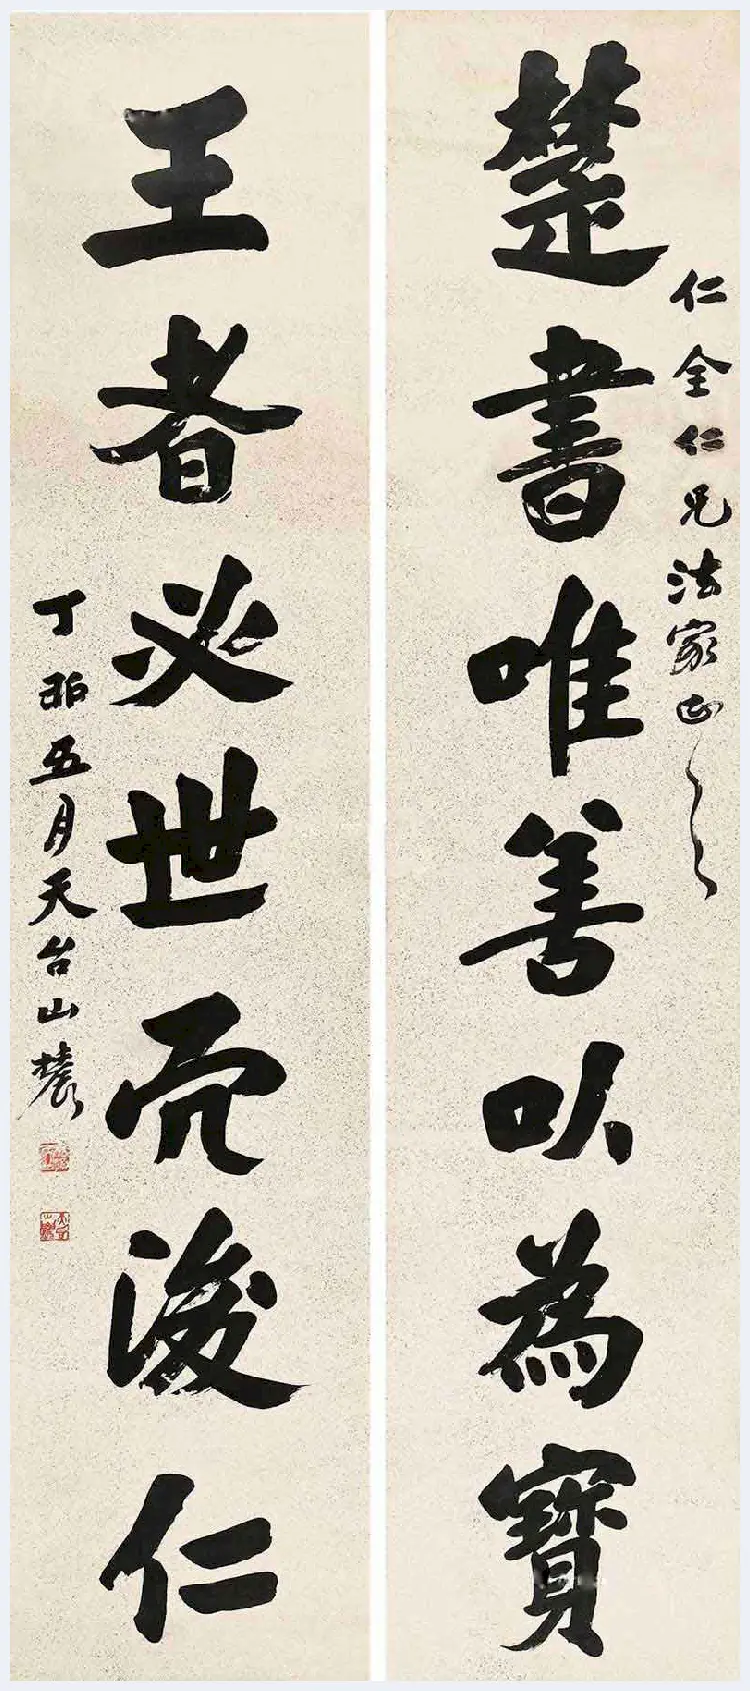 仁全仁兄法家正之
楚書唯善以為寶
王者必世而後仁
丁卯五月天台山農